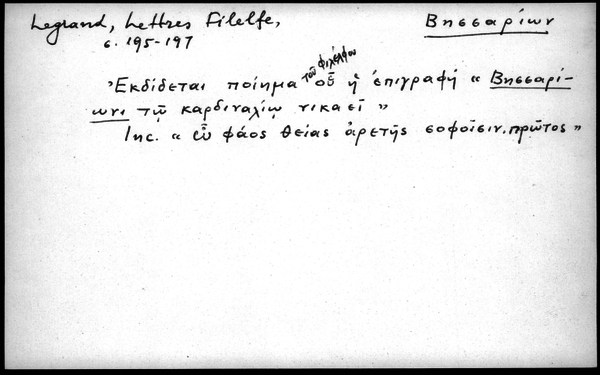 Legrand, Lettres Filelfe,
Βησσαρίων
σ. 195-197
Ἐκδίδεται ποίημα τοῦ Φιλέλφου οὗ ἡ ἐπιγραφή « Βησσαρί-
ωνι τῷ καρδιναλίῳ νικαεῖ »
Inc. « εὖ φάος θείας ἀρετῆς σοφοῖσιν, πρῶτος »